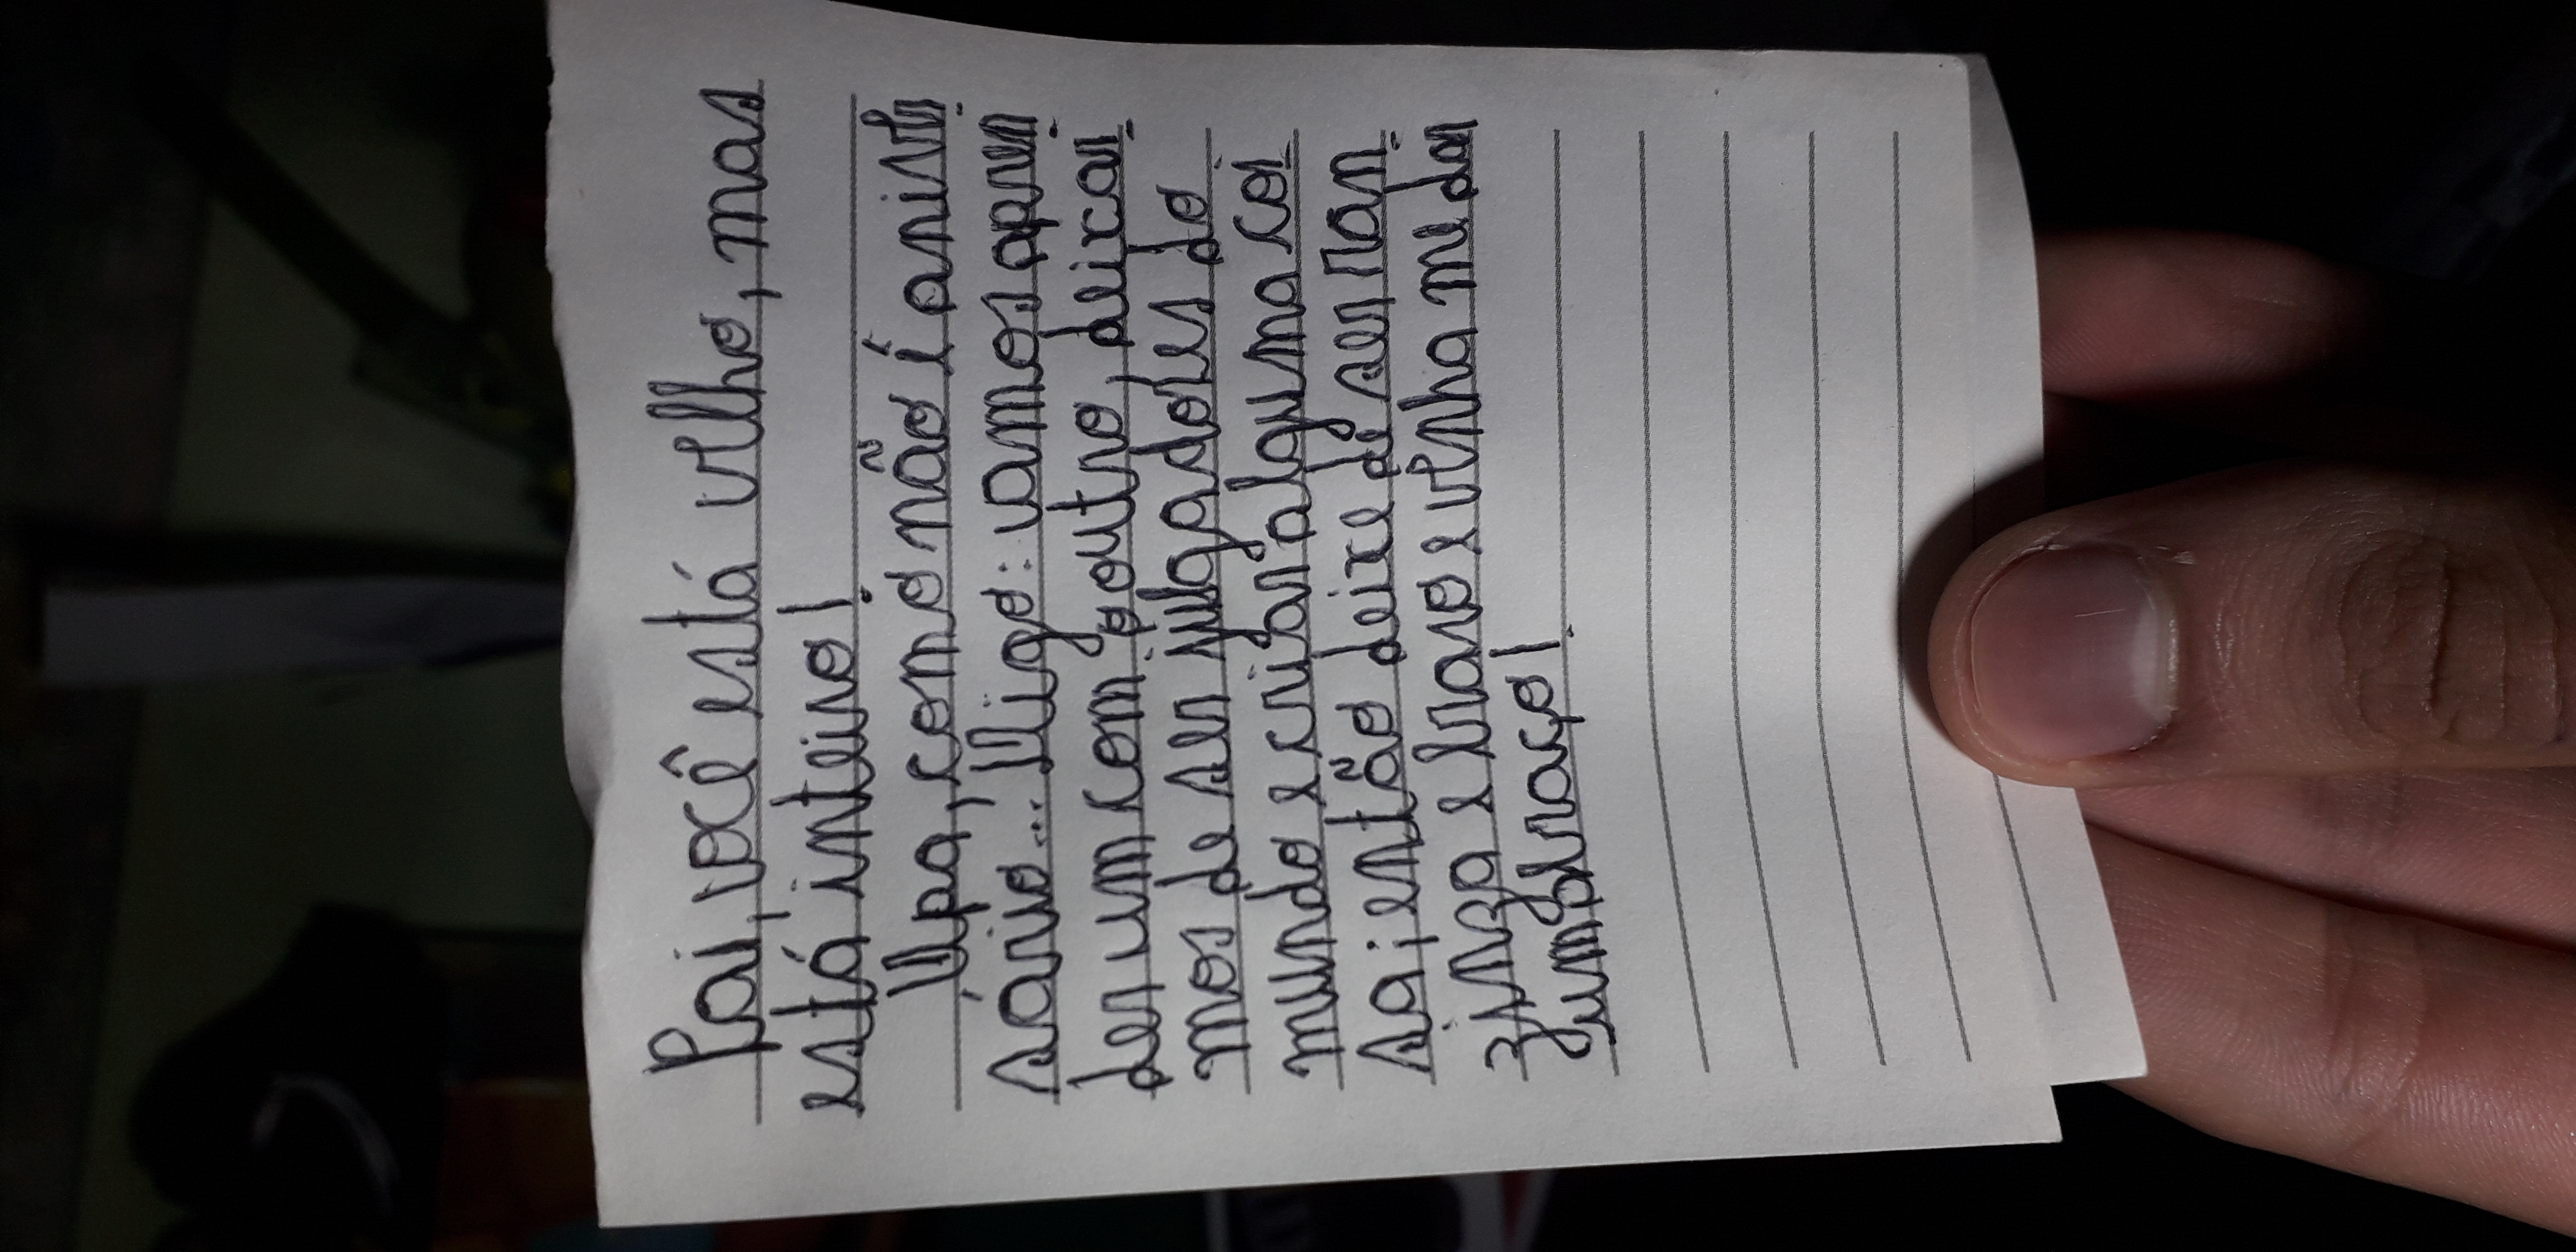 Pai, você está velho, mas
está inteiro!
Upa, como não é aniver
sário... Digo: vamos apren
der um com o outro, deixar
mos de ser julgadores do
mundo e criar alguma coi
sa; então deixe de ser ran
zinza e bravo e venha me dar
um abraço!